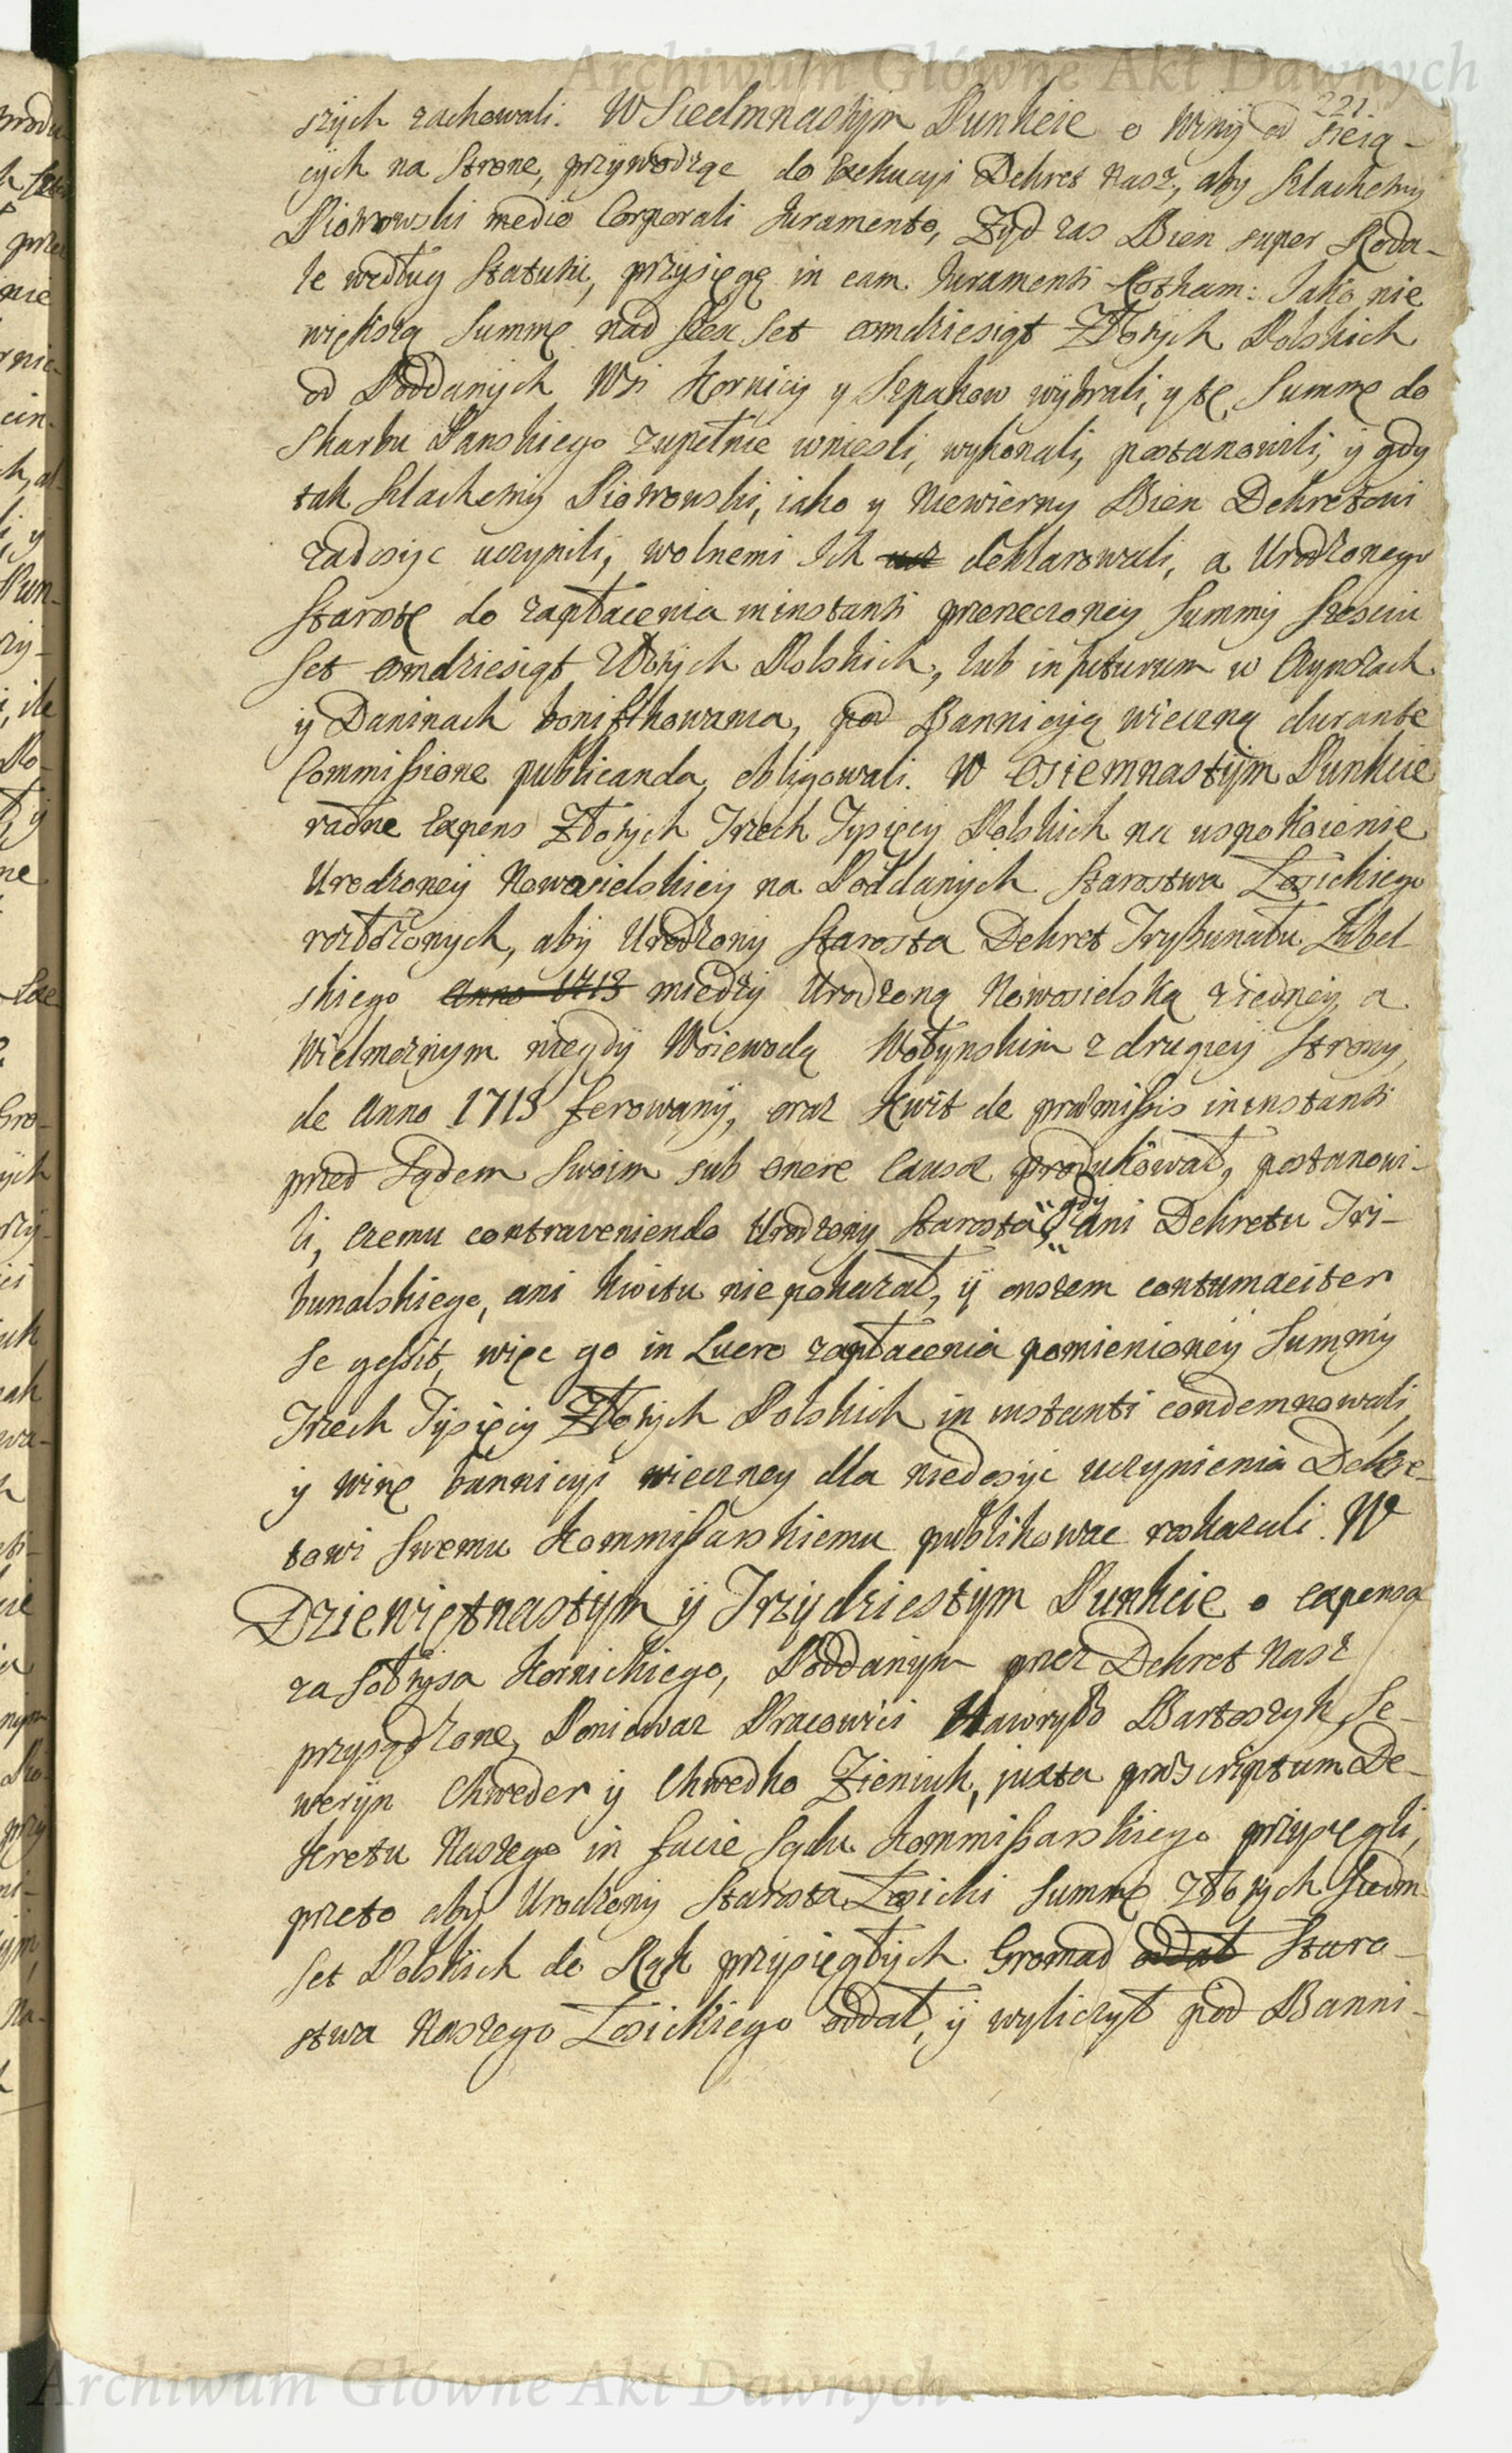 Archiwum Główne Akt Dawnych
221.
szÿch zachowali. W Siedmnastÿm Punkcie o winÿ od sieią-
cÿch na Strone, przÿwodząc do Exekucÿi Dekret Nasz, aby Szlachetny
Piotrowski medio Corporali Juramento, Żÿd zas Bien super Roda-
le według Statutu, przÿsięgę in eam Juramenti Rotham: Jako nie
większą Summę nad szesc set osmdziesiąt Złotÿch Polskich
od Poddanÿch Wsi Kornicÿ y Szpakow wÿbrali, y tę Summę do
Skarbu Panskiego zupełnie wniesli, wykonali, postanowili, ÿ gdy
tak Szlachetnÿ Piotrowski, iako y Niewierny Bien Dekretowi
zadosÿc uczynili, wolnemi Ich deklarowali, a Urodzonego
Starostę do zapłacenia in instanti przerzeczoneÿ Summÿ Szesciu
Set osmdziesiąt Złotÿch Polskich, lub in futurum w Czynszach
ÿ Daninach bonifikowania, pod Bannicÿą wieczną durante
Commissione publicanda, obligowali. W Osiemnastÿm Punkcie
radne Expens Złotÿch Trzech Tysięcÿ Polskich na uspokoienie
Urodzoneÿ Nowosielskieÿ na Poddanÿch Starostwa Łosickiego
rozłożonych, abÿ Urodzonÿ Starosta Dekret Trybunału Lubel
skiego Anno 1713 miedzÿ Urodzoną Nowosielską z iedneÿ, a
Wielmożnym niegdÿ Woiewodą Wołynskim z drugieÿ Stronÿ,
de Anno 1713 ferowanÿ, oraz Kwit de præmissis in instanti
przed Sądem Swoim sub onere Causæ produkował, postanowi-
li, czemu contraveniendo Urodzony Starosta gdy ani Dekretu Tri-
bunalskiego, ani Kwitu nie pokazał, ÿ owszem contumaciter
se gessit, więc go in Lucro zapłacenia pomienioneÿ Summÿ
Trzech Tÿsięcÿ Złotÿch Polskich in instanti condemnowali,
ÿ winę bannicÿi wieczney dla niedosÿc uczynienia Dekre-
towi Swemu Kommissarskiemu publikowac roskazali. W
Dziewiętnastÿm ÿ Trzÿdziestÿm Punkcie o expensa
za Sołtysa Kornickiego, Poddanÿm przez Dekret Nasz
przysądzone, Poniewaz Pracowici Hawryło Bartoszyk, Se-
werÿn Chweder ÿ Chwedko Zieniuk, juxta præscriptum De-
kretu Naszego in facie Sądu Kommissarskiego przysięgli,
przeto abÿ Urodzonÿ Starosta Łosicki Summę Złotÿch Siedm
Set Polskich do Rąk przÿsięgłÿch Gromad oddał Staro-
stwa Naszego Łosickiego oddał, ÿ wyliczył pod Banni-
Archiwum Główne Akt Dawnych